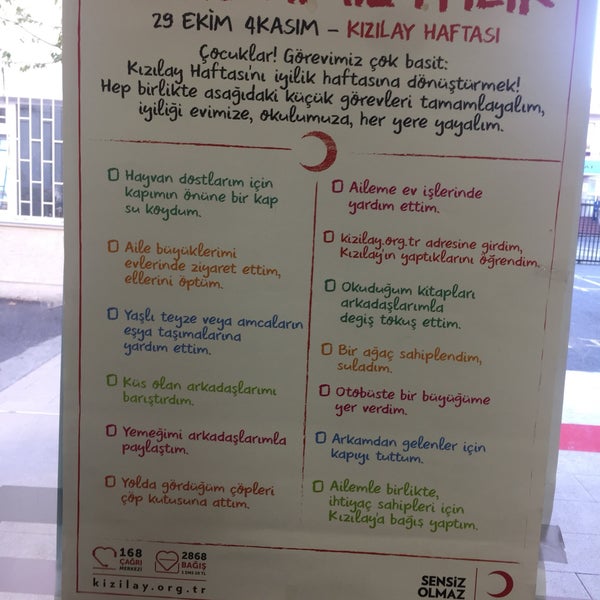 29 EKİM 4KASIM – KIZILAY HAFTASI
Çocuklar! Görevimiz çok basit:
Kızılay Haftasını iyilik haftasına dönüştürmek!
Hep birlikte asağıdaki küçük görevleri tamamlayalım,
iyiliği evimize, okulumuza, her yere yayalım.
Hayvan dostlarım için
kapımın önüne bir kap
su koydum.
Aile büyüklerimi
evlerinde ziyaret ettim,
ellerini öptüm.
Yaşlı teyze veya amcaların
eşya taşımalarına
yardım ettim.
Küs olan arkadaşlarımı
barıştırdım.
Yemeğimi arkadaşlarımla
paylaştım.
Yolda gördüğüm çöpleri
çöp kutusuna attım.
Aileme ev işlerinde
yardım ettim.
kizilay.org.tr adresine girdim,
Kızılay'ın yaptıklarını öğrendim.
Okuduğum kitapları
arkadaşlarımla
değiş tokuş ettim.
Bir ağaç sahiplendim,
suladım.
Otobüste bir büyüğüme
yer verdim.
Arkamdan gelenler için
kapıyı tuttum.
Ailemle birlikte,
ihtiyaç sahipleri için
Kızılaya bağış yaptım.
168
ÇAĞRI
MERKEZİ
2868
BAĞIŞ
1 SMS 10 TL
kizilay.org.tr
SENSİZ
OLMAZ